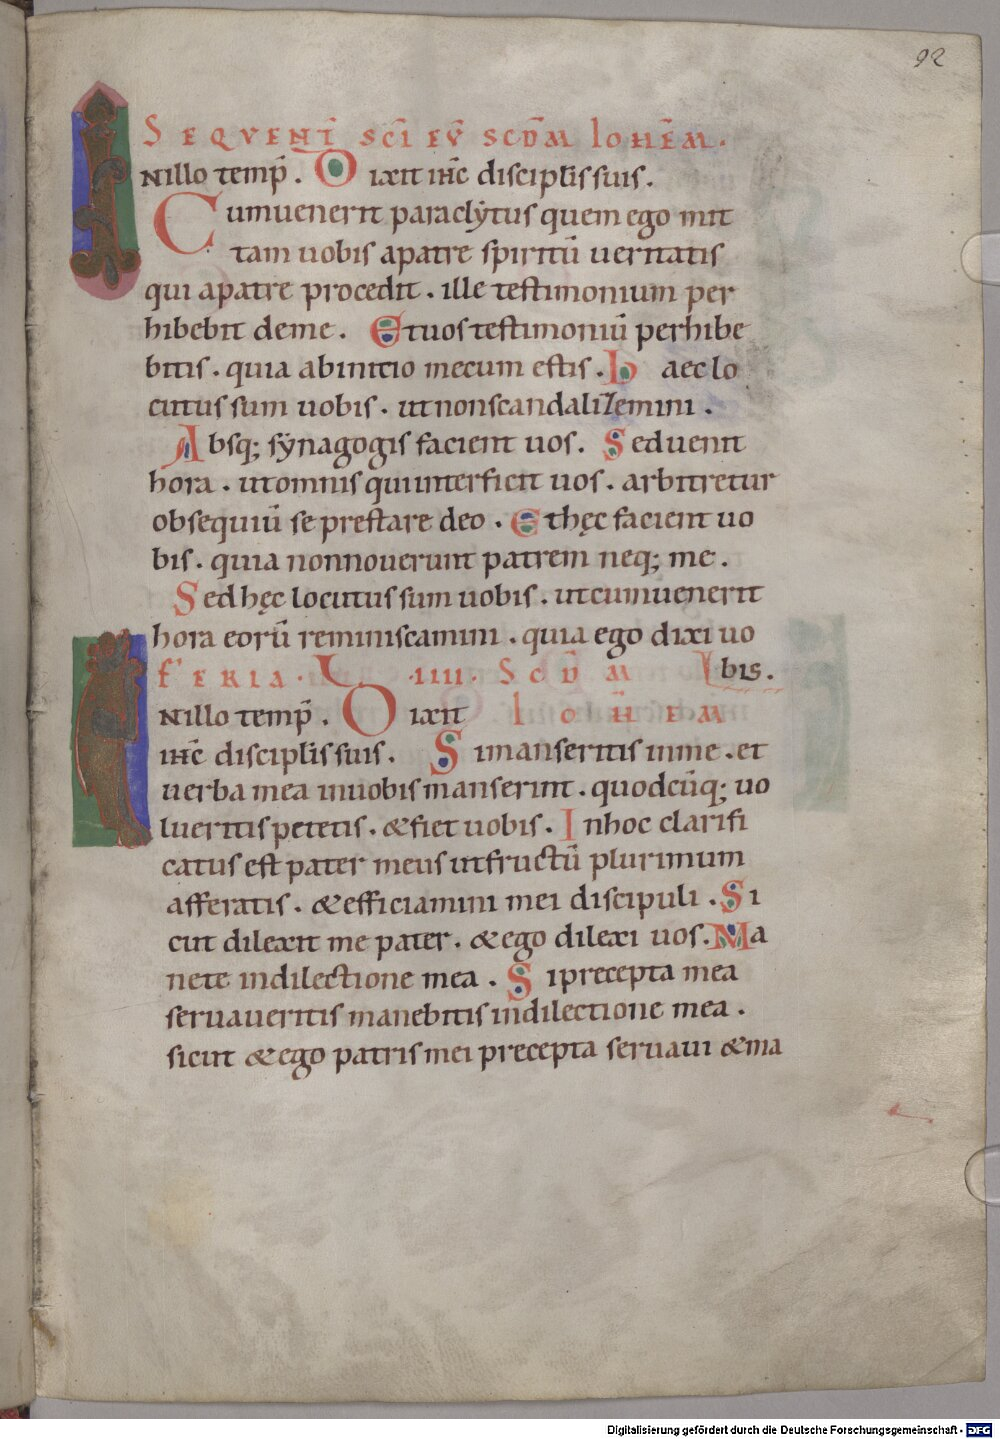 92
SEQVENT̄ SC̄I EV̄ SCD̄M IOHĒM.
INILLO temp̄. Dixit ih̄c discipl̄is suis.
Cumuenerit paraclẏtus quem ego mit
tam uobis apatre spiritū ueritatis
qui apatre procedit. ille testimonium per
hibebit deme. Etuos testimoniū perhibe
bitis. quia abinitio mecum estis. haec lo
cutus sum uobis. utnonscandalizemini.
Absq; sẏnagogis facient uos. Seduenit
hora. utomnis quiinterficit uos. arbitretur
obsequiū se prestare deo. Ethęc facient uo
bis. quia nonnouerunt patrem neq; me.
Sedhęc locutus sum uobis. utcumuenerit
hora eorū reminiscamini. quia ego dixi uo
bis.
FERIA. .IIII. SCD̄M
INILLO temp̄. Dixit IOH̄EM
ih̄c discipl̄is suis. Simanseritis inme. et
uerba mea inuobis manserint. quodcūq; uo
lueritis petetis. &fiet uobis. Inhoc clarifi
catus est pater meus utfructū plurimum
afferatis. &efficiamini mei discipuli. Si
cut dilexit me pater. &ego dilexi uos. Ma
nete indilectione mea. Siprecepta mea
seruaueritis manebitis indilectione mea.
sicut &ego patris mei precepta seruaui &ma
Digitalisierung gefördert durch die Deutsche Forschungsgemeinschaft - DFG